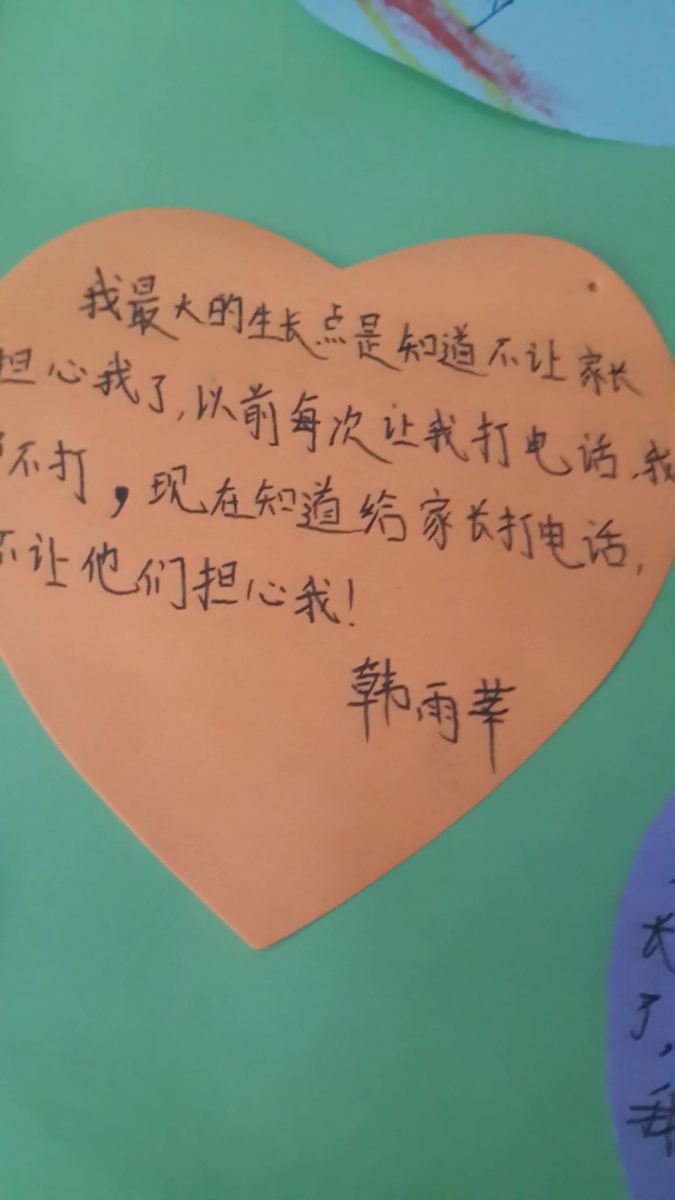 我最大的生长点是知道不让家长
担心我了,以前每次让我打电话,我
不打,现在知道给家长打电话,
不让他们担心我!
韩雨莘
长
了,